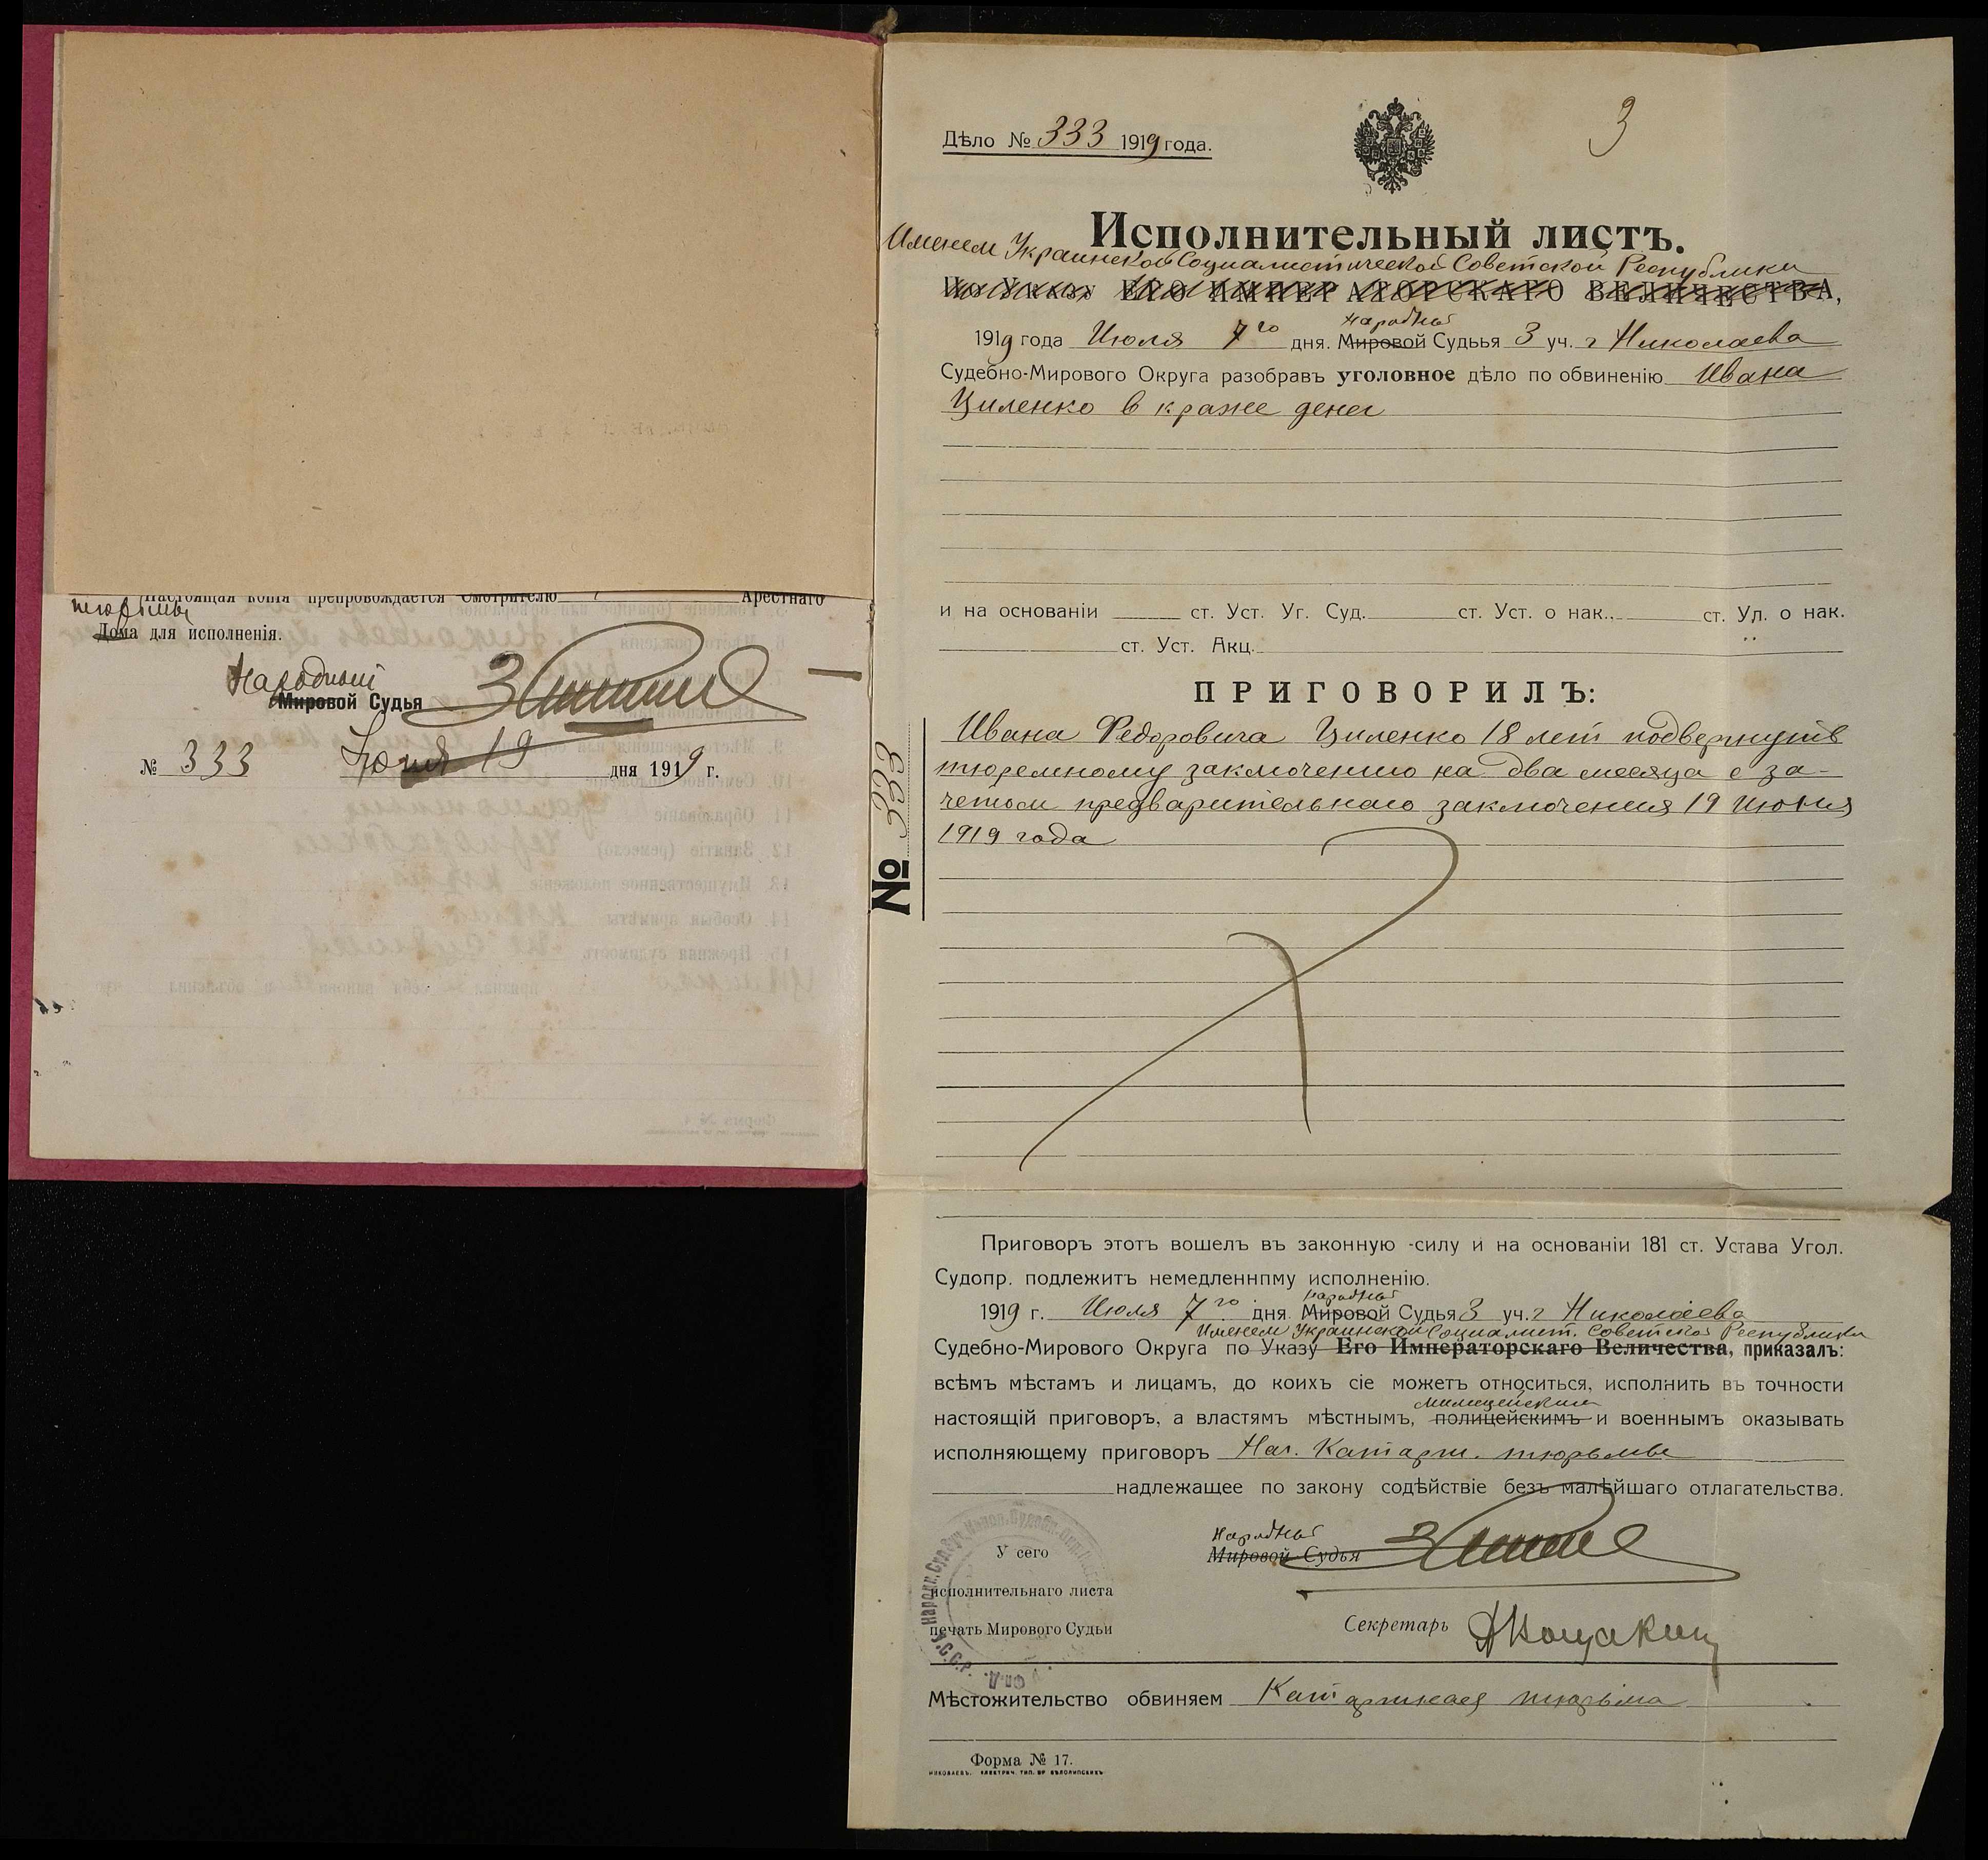 Настоящая копія препровождается Смотрителю Арестнаго
тюрьмы
Дома для исполненія.
Народный
Мировой Судья
№ 333 Июня 19 дня 1919 г.
3
Дѣло № 333 1919 года.
Исполнительный листъ.
Именем Украинской Социалистической Советской Республики
По Указу ЕГО ИМПЕРАТОРСКАГО ВЕЛИЧЕСТВА,
Народный
1919 года Июля 7го дня. Мировой Судьья 3 уч. г Николаева
Судебно-Мирового Округа разобравъ уголовное дѣло по обвиненію Ивана
Циленко в краже денег
и на основаніи ст. Уст. Уг. Суд. ст. Уст. о нак., ст. Ул. о нак.
ст. Уст. Акц.
ПРИГОВОРИЛЪ:
№ 333
Ивана Федоровича Циленко 18 лет подвергнуть
тюремному заключению на два месяца с за-
четом предварительнаго заключения 19 июня
1919 года
Приговоръ этотъ вошелъ въ законную -силу и на основаніи 181 ст. Устава Угол.
Судопр. подлежитъ немедленнпму исполненію.
народный
1919 г. Июля 7го дня. Мировой Судья 3 уч. г Николаева
Именем Украинской Социалист. Советской Республики
Судебно-Мирового Округа по Указу Его Императорскаго Величества, приказалъ:
всѣмъ мѣстамъ и лицамъ, до коихъ сіе можетъ относиться, исполнить въ точности
милицейским
настоящій приговоръ, а властямъ мѣстнымъ, полицейскимъ и военнымъ оказывать
исполняющему приговоръ Нач. Каторж. тюрьмы
надлежащее по закону содѣйствіе безъ малѣйшаго отлагательства.
Народный
Мировой Судья
У сего
исполнительнаго листа
печать Мирового Судьи
Секретарь
Мѣстожительство обвиняем Каторжная тюрьма
Форма № 17.